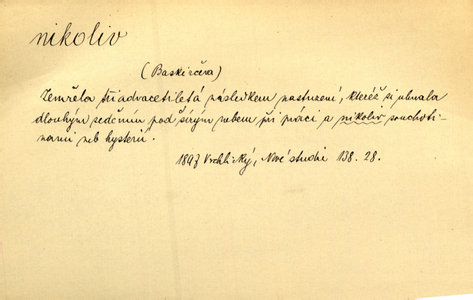 nikoliv
(Baskirčeva)
Zemřela třiadvacetiletá následkem nastuzení, kteréž si uhnala
dlouhým seděním pod širým nebem při práci a nikoliv souchoti-
nami neb hysterií.
1897 Vrchlický, Nové studie 138. 28.